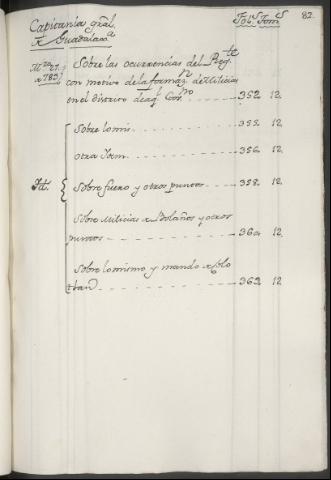 Capitanía gral. Fol.s Tom.s 82.
de Guadalaxa.
Sobre las ocurrencias del Reg.te
con motivo de la formaz.n de Milicias
en el distrito de aql. Gov.no 352 12.
Sobre lo mis. 355. 12.
Otra Idem. 356. 12.
Id. Sobre fuero y otros puntos 358. 12.
Sobre Milicias de Bolaños y otros
puntos 360. 12.
Sobre lo mismo y mando
362 12.